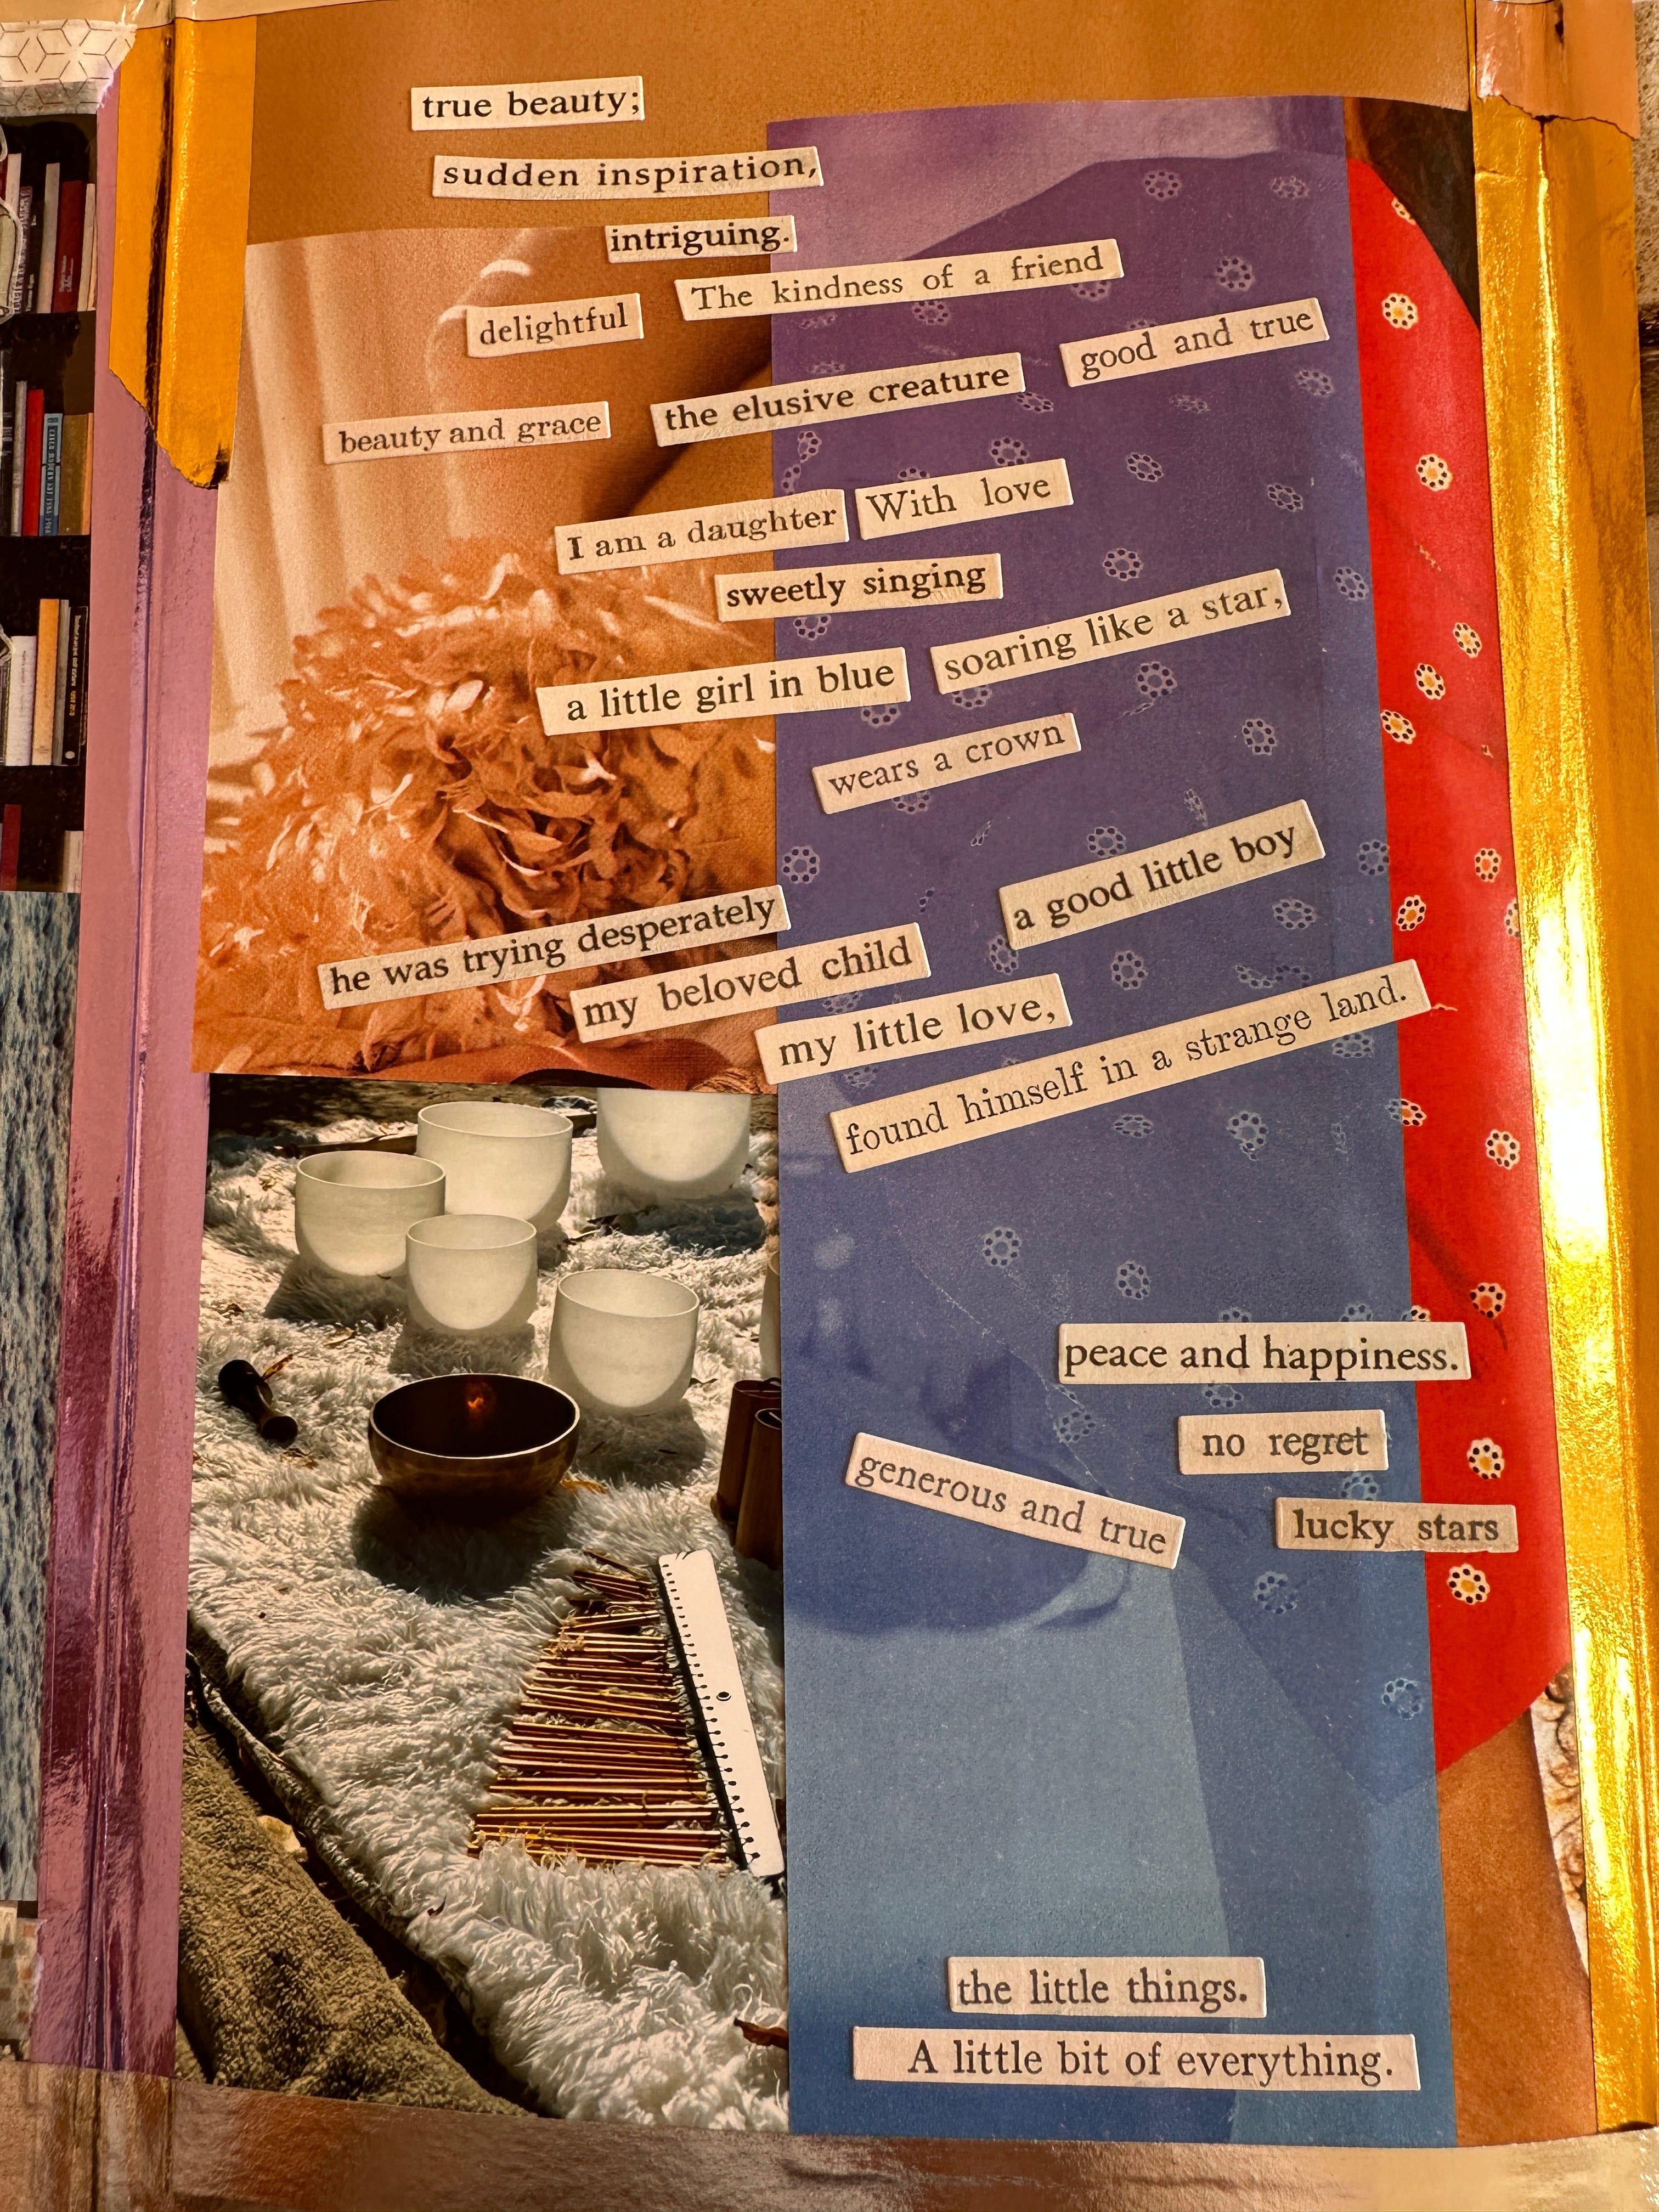 true beauty;
sudden inspiration,
intriguing.
The kindness of a friend
delightful
good and true
the elusive creature
beauty and grace
I am a daughter With love
sweetly singing
a little girl in blue soaring like a star,
wears a crown
a good little boy
he was trying desperately
my beloved child
my little love,
found himself in a strange land.
peace and happiness.
no regret
generous and true
lucky stars
the little things.
A little bit of everything.